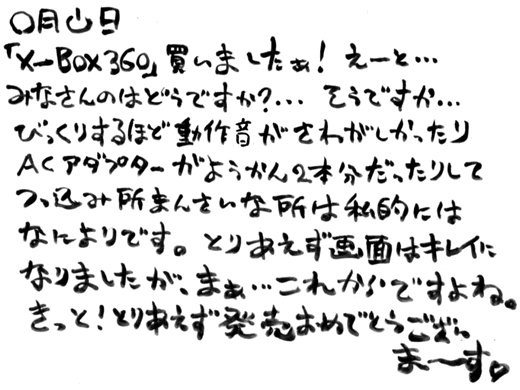 〇月△日
「X-BOX360」買いましたぁ！ えーと…
みなさんのはどうですか？… そうですか…
びっくりするほど動作音がさわがしかったり
ACアダプターがようかん2本分だったりして
つっ込み所まんさいな所は私的には
なによりです。とりあえず画面はキレイに
なりましたが、まぁ…これからですよね。
きっと！とりあえず発売おめでとうござい
ま〜す♡